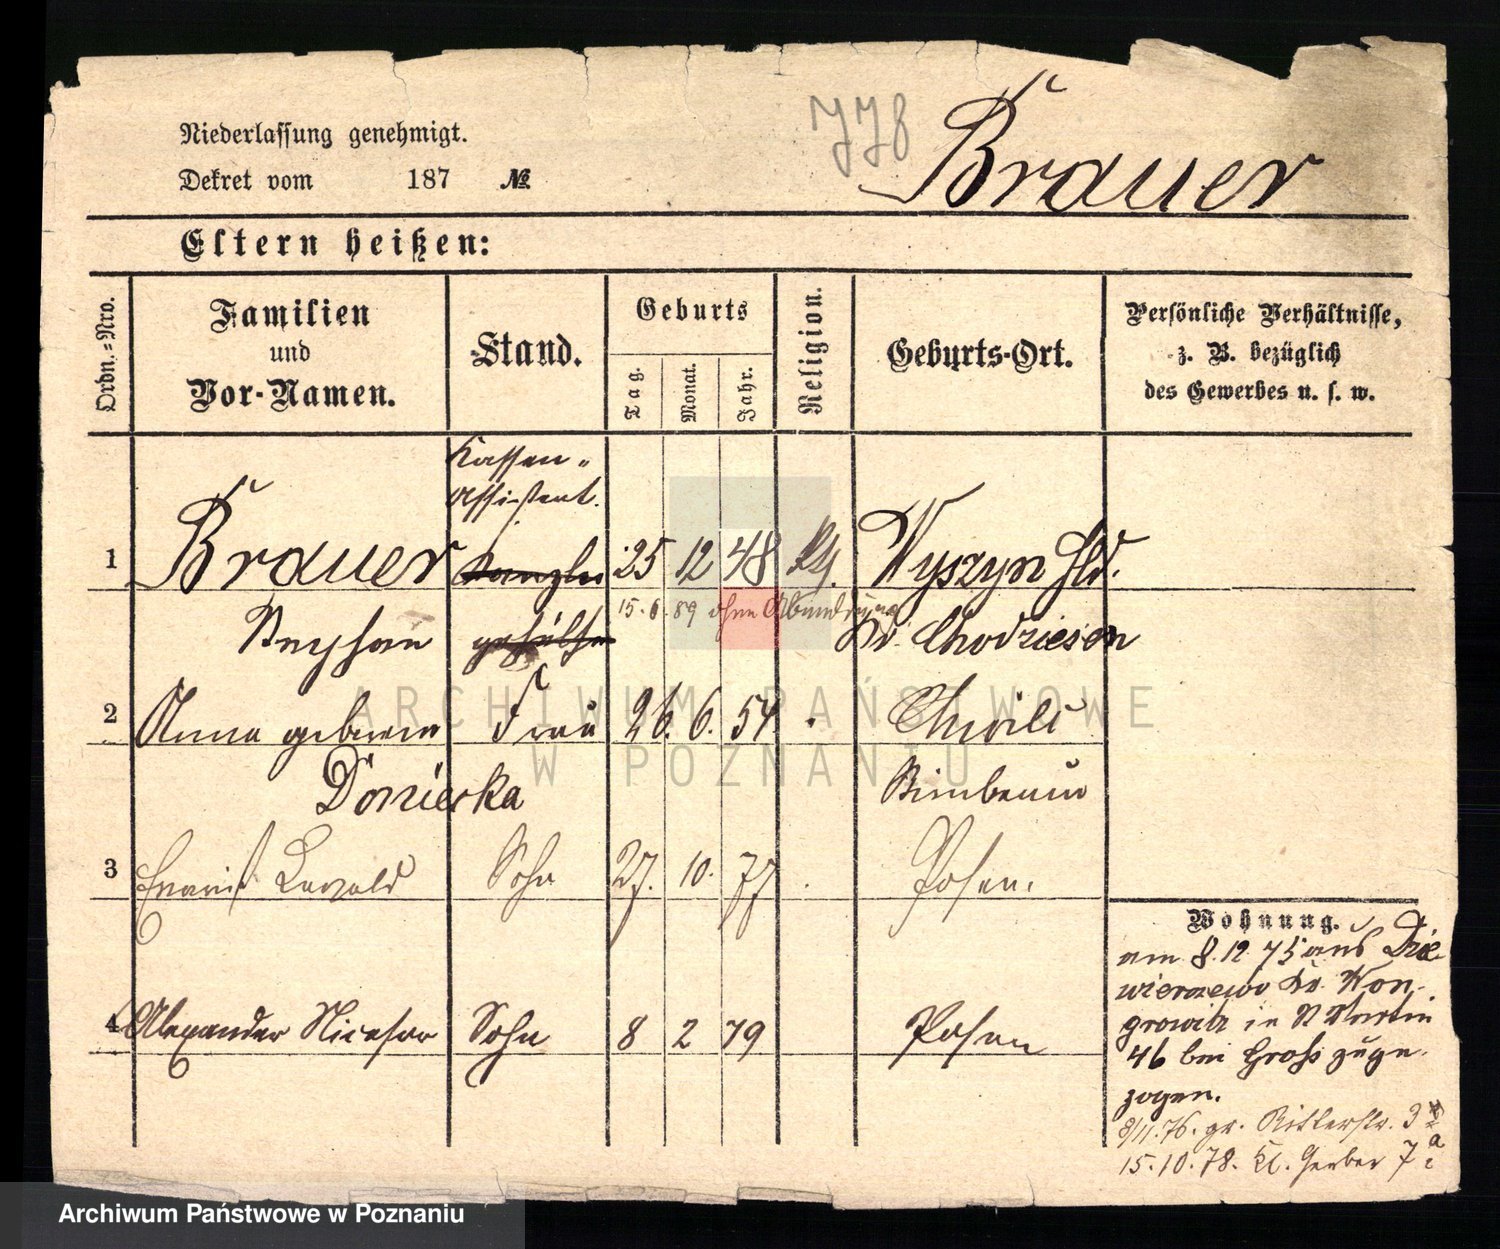 778 Brauer
Niederlassung genehmigt.
Dekret vom 187 №
Eltern heißen:
Ordn.-Nro.
Familien
und
Vor-Namen.
Stand.
Geburts
Tag.
Monat.
Jahr.
Religion.
Geburts-Ort.
Persönliche Verhältnisse,
z. B. bezüglich
des Gewerbes u. s. w.
Kassen-
assistent.
1 Brauer Kanzlei 25 12 48 Wyszyn Hld.
15. 6. 89 ohne Abmeldung
Stephan gehülfe Kr. Chodziesen
2 Anna geborene Frau 26. 6. 54
Donierka Birnbaum
3 Sohn 27. 10. 77 Posen.
4 Alexander Sohn 8 2 79 Posen
Wohnung.
am 8. 12 75 aus Dzie-
wierzewo Kr. Won-
growitz in St Martin
46 bei Groß zuge-
zogen.
8/11. 76. gr. Ritterstr. 3
15. 10. 78. Kl. Gerber 7
ARCHIWUM PAŃSTWOWE
W POZNANIU
Archiwum Państwowe w Poznaniu